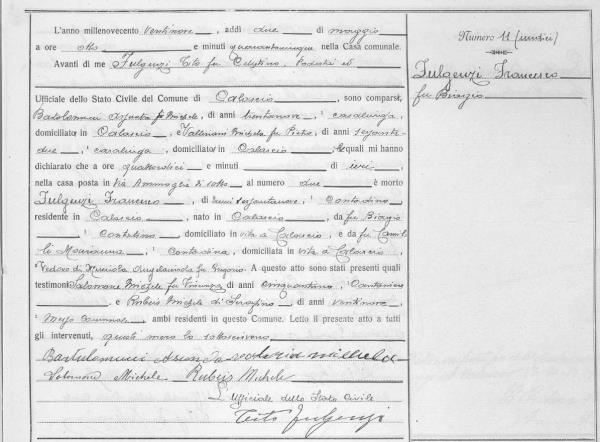 L'anno millenovecento ventinove, addì due di maggio
a ore otto e minuti quarantacinque nella Casa comunale.
Avanti di me Fulgenzi Tito fu Celestino, Podestà ed
Ufficiale dello Stato Civile del Comune di Calascio, sono comparsi,
Bartolomucci fu Michele, di anni, casalinga,
domiciliata in Calascio, e Valeriani Michela fu Pietro, di anni sessanta-
due, casalinga, domiciliata in Calascio, le quali mi hanno
dichiarato che a ore quattordici e minuti di ieri,
nella casa posta in Via di sotto al numero due è morto
Fulgenzi Francesco, di anni sessantanove, contadino
residente in Calascio, nato in Calascio, da fu Biagio
contadino, domiciliato in vita a Calascio, e da fu Camil-
li Marianna, contadina, domiciliata in vita a Calascio,
vedovo di fu Gregorio. A questo atto sono stati presenti quali
testimoni Salomone Michele fu Vincenzo, di anni
e Rubeis Michele di Serafino, di anni ventinove,
Messo comunale, ambi residenti in questo Comune. Letto il presente atto a tutti
gli intervenuti, questi meco lo sottoscrivono
Bartolomucci Assunta Valeria Michela
Solomone Michele Rubeis Michele
L'Ufficiale dello Stato Civile
Tito Fulgenzi
Numero 11 (undici)
Fulgenzi Francesco
fu Biagio